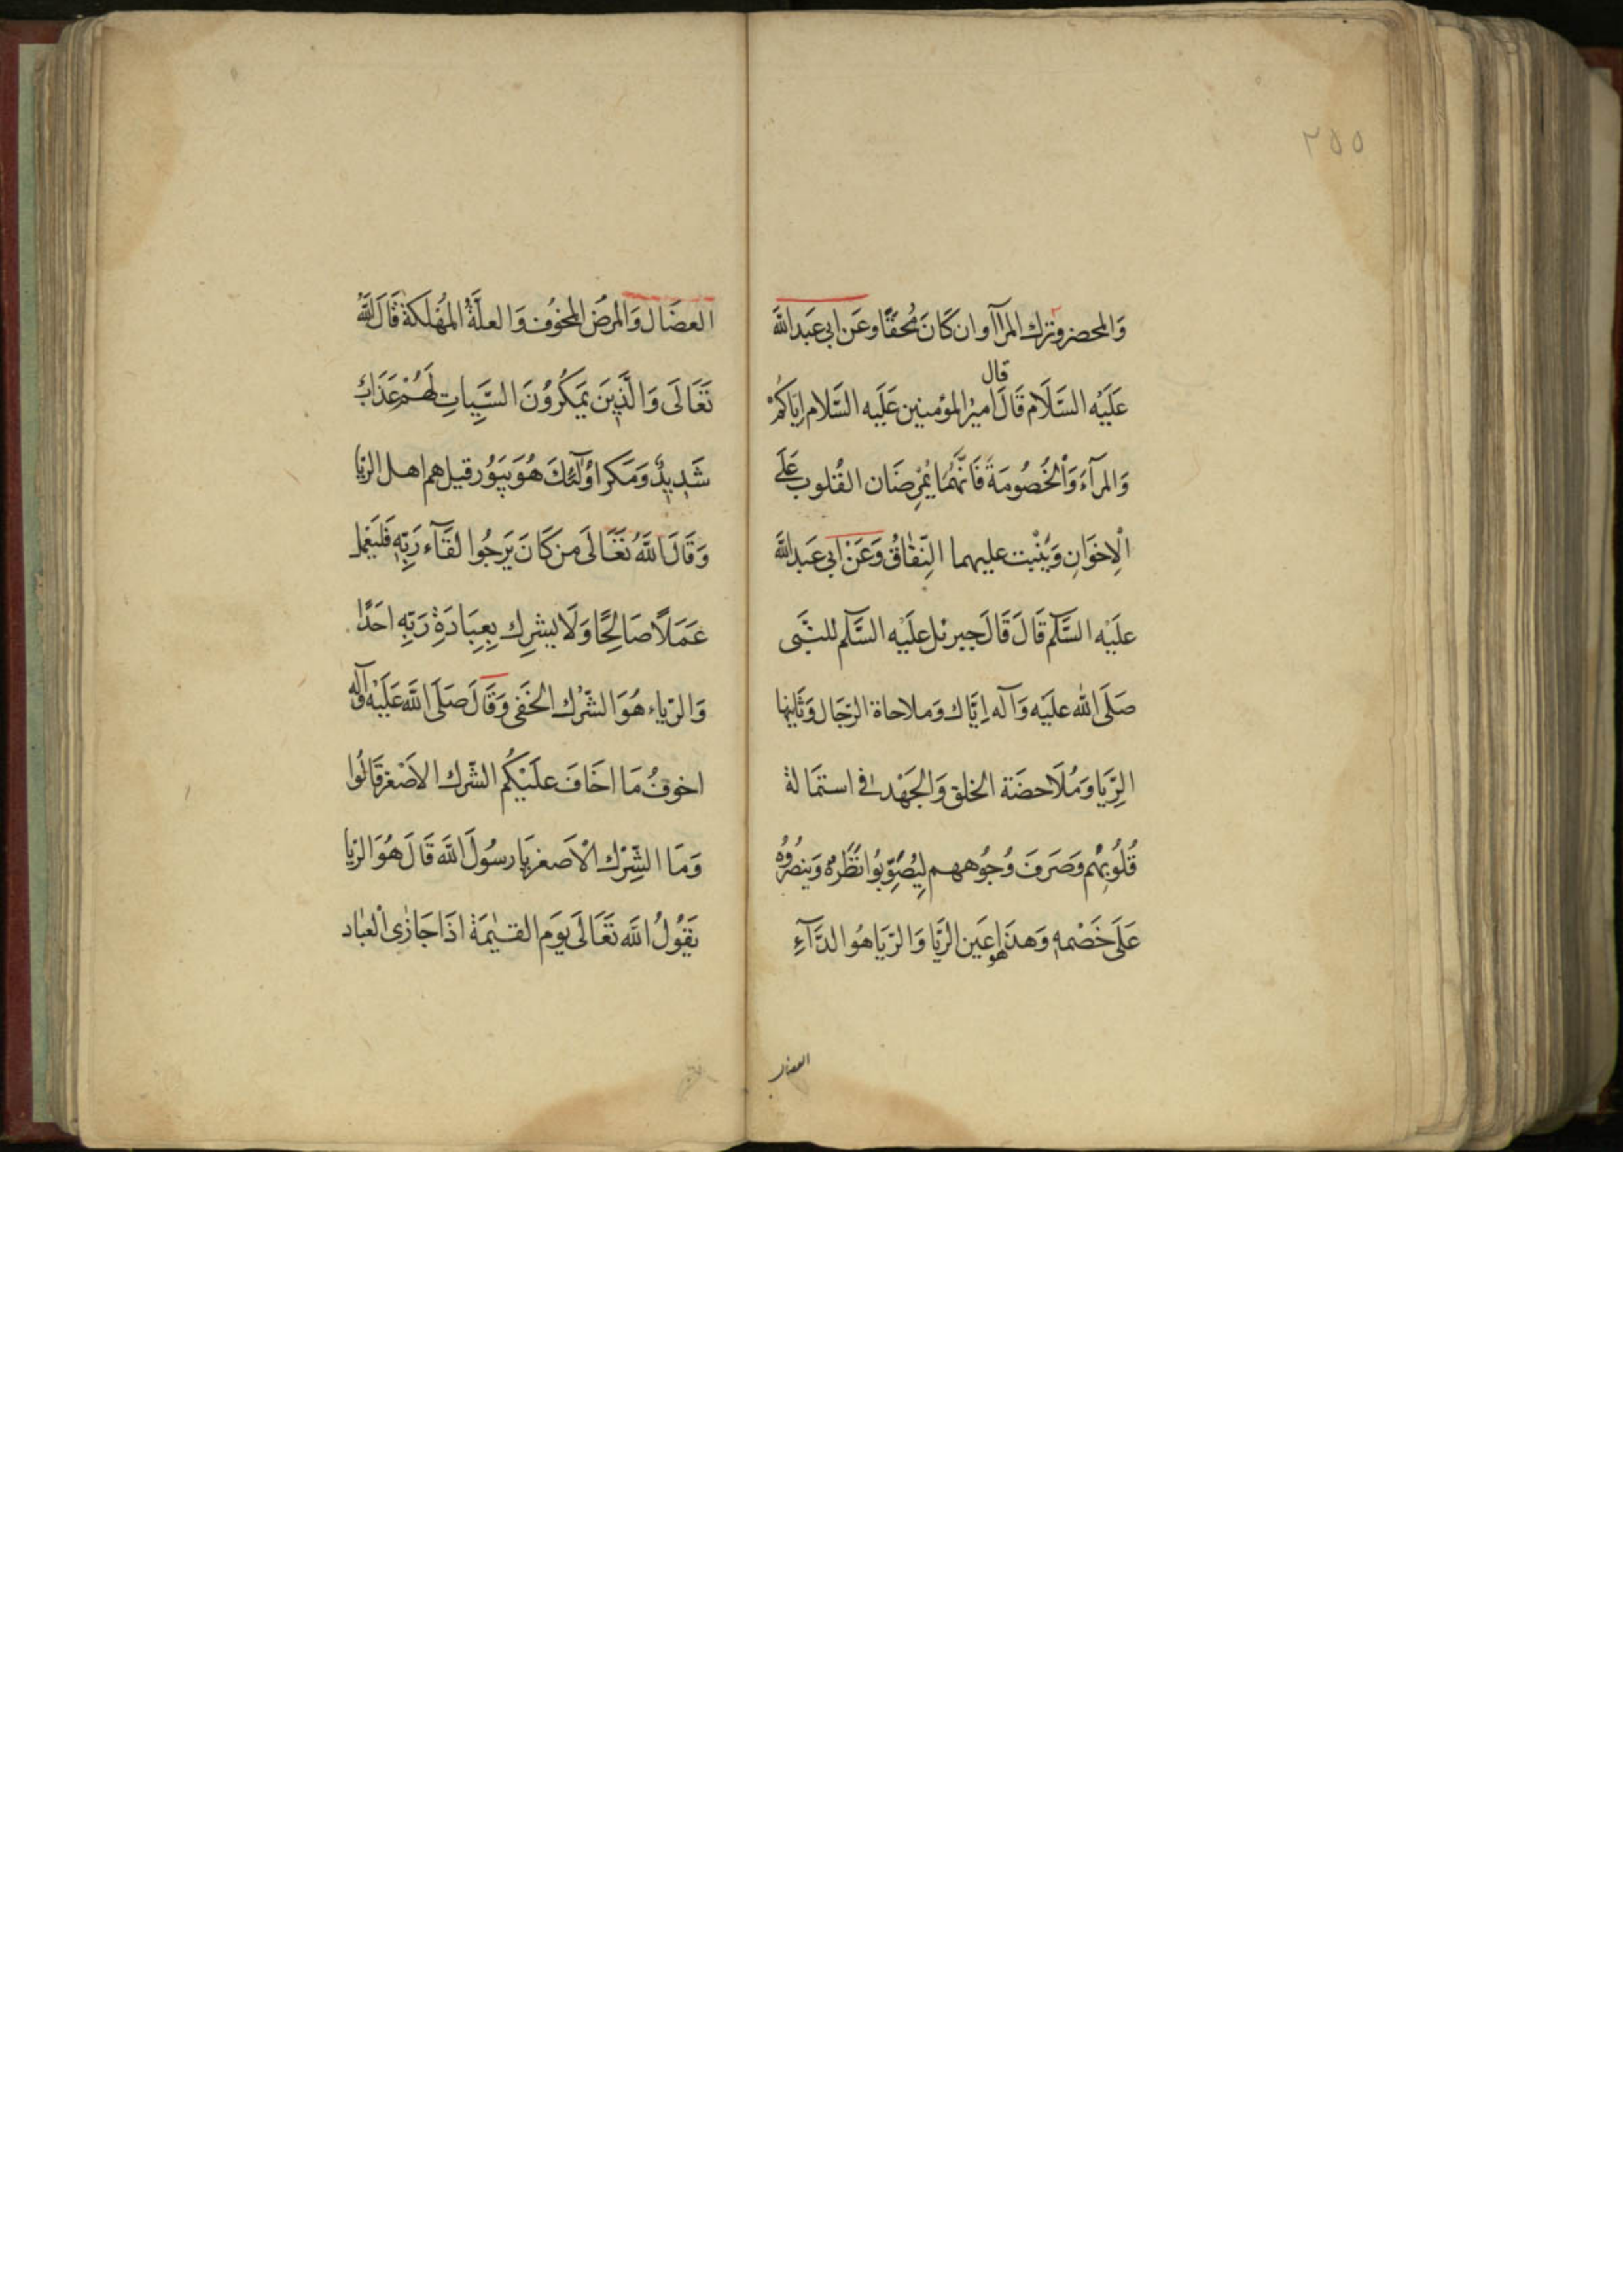 ٢٥٥
وَالمحضر وترك المرآ وان كَانَ مُحقًّا وعَن ابي عَبدالله
قال
عَلَيْه السَّلَام قَالَ امير المؤمنين عَلَيه السَّلام اِيّاكُمْ
وَالمرآءَ وَالْخُصُومَةَ فَانَّهُمَا يُمْرِضَان القُلوبَ عَلَى
الْاِخوَانِ وَيَنْبُت عليهما النِّفاقُ وَعَنْ ابي عَبدالله
علَيْه السَّلم قَالَ قَالَ جبرئل علَيْه السَّلم للنَّبَى
صَلَى الله علَيْه وَآله اِيَّاك وَملاحاة الرّجَال وَثَانِيها
الرِّيَا وَمُلَاحضَة الخلق وَالجَهْد فى استمَالة
قُلُوبِهُم وَصَرفَ وُجُوههم لِيُصَوِّبُوا نَظَرهُ وَينصُرُوهُ
عَلَى خَصْمه وَهذا هو عَين الرِّيَا وَالرِّيَا هُو الدَّآءِ
العضال
العضَال وَالمرضُ المخوُف وَالعلَّةُ المُهْلَكة قَالَ اللّهُ
تَعَالَى وَالَّذِينَ يَمكُرُوُنَ السَّيِّياتِ لَهُمْ عَذَابٌ
شَدِيدٌ وَمَكر اوُلٓئكَ هُوَ يَبُوُر قيل هم اهل الرّيا
وَقَالَ اللّهُ تَعَالَى من كَانَ يَرجُوا لقَآء رَبِّهِ فَليَعْمل
عَمَلاً صَالحًا وَلَا يشرِك بِعِبَادَةِ رَبّهِ احَدًا
وَالرّياء هُوَ الشّرْك الخَفى وَقَالَ صَلَى الله عَلَيْه وآله
اخوفُ مَا اخَافَ علَيْكُم الشّرك الاَصْغر قَالُوا
وَمَا الشِّرْك الْاَصغر يَا رسُولَ الله قَالَ هُوَ الرّيا
يَقُوْلُ الله تَعَالَى يَوم القيٰمَة اذَا جَازٰى الْعبٰاد